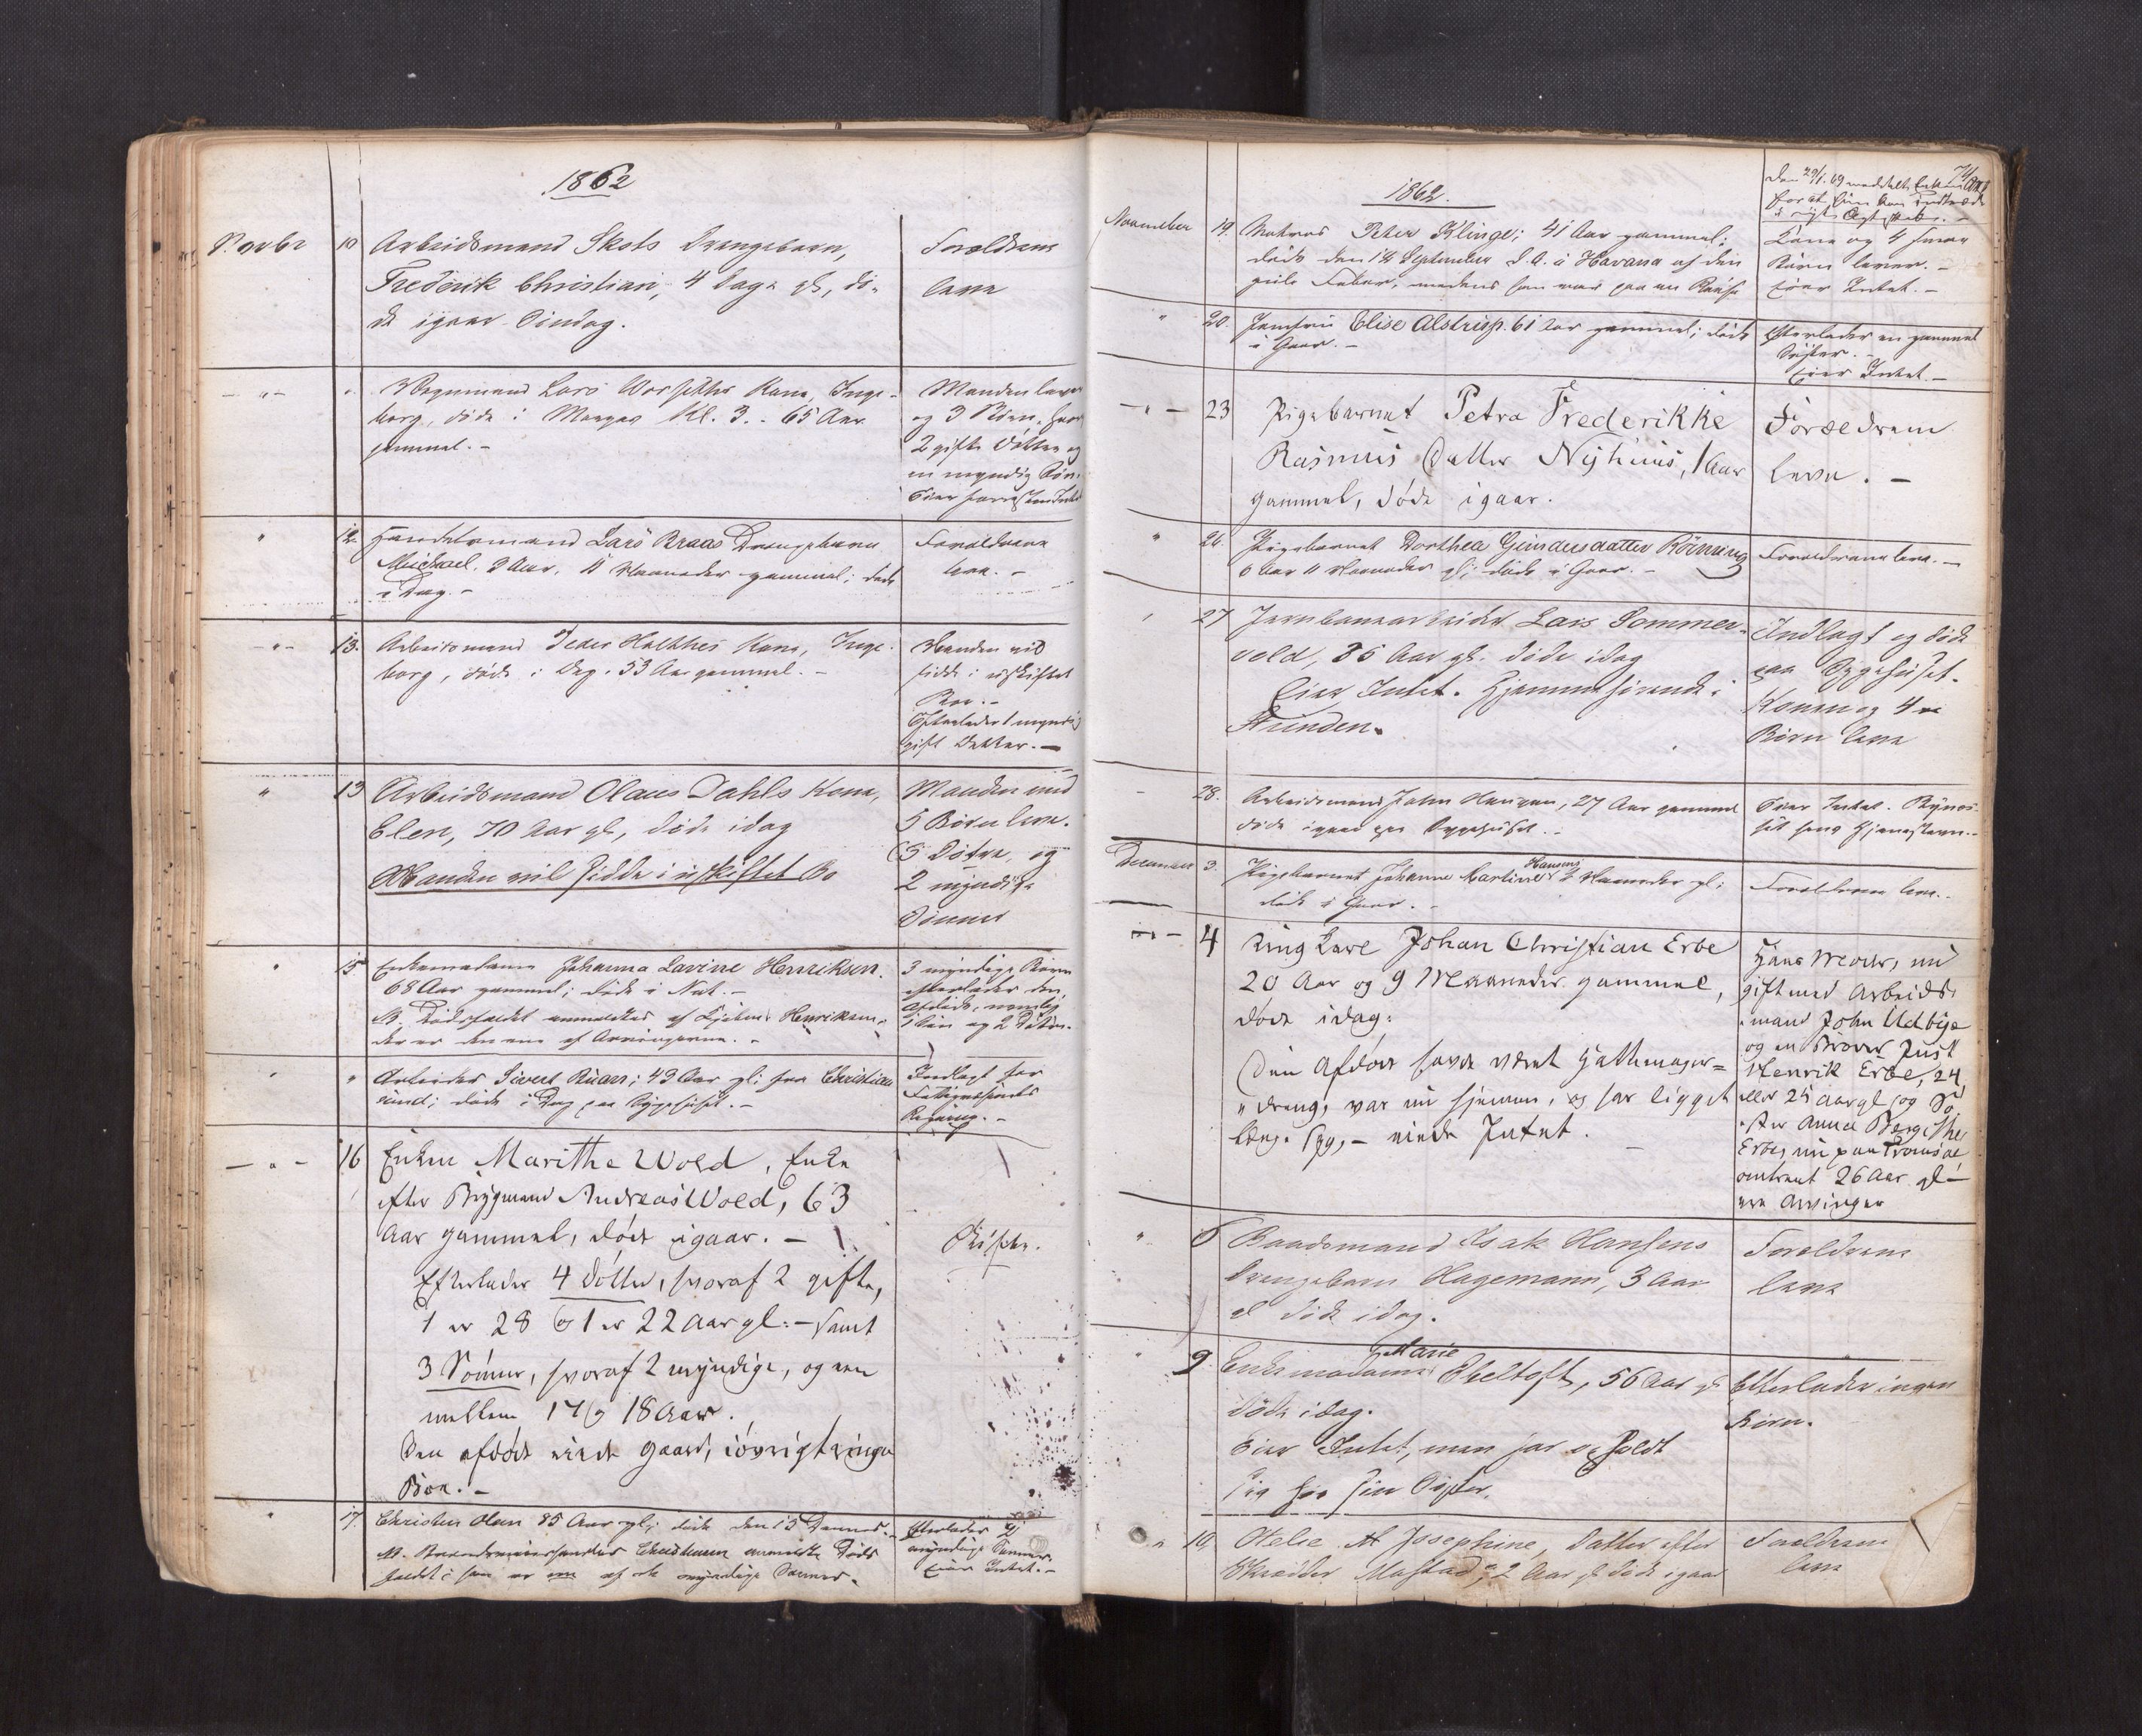 1862
Novbr 10 Arbeidsmand Skots Drengebarn,
Frederik Christian, 4 Dage gl, dö-
de igaar Söndag.
Forældrene
leve
" Lars Kone, Inge-
borg, döde i Morges Kl. 3. - 65 Aar
gammel. -
Manden lever
og 3 Börn, hvor
2 gifte Döttre og
en myndig Sön.
" 12. Handelsmand Lars Braas Drengebarn
Michael. 2 Aar, 11 Maaneder gammel; döde
i Dag. -
Forældrene
leve. -
" 13. Arbeidsmand Peder Kone, Inge-
borg, döde i Dag. 53 Aar gammel. -
Manden vil
sidde i uskiftet
Boe. -
Efterlader 1 myndig
gift Datter. -
" 13 Arbeidsmand Olaus Dahls Kone,
Elen, 70 Aar gl, döde idag
Manden vil sidde i uskiftet Bo
Manden med
5 Börn leve.
3 Dötre, og
2 myndige
Sönner
" 15. Enkemadame Johanna Lavine Henriksen.
68 Aar gammel; döde i Nat. -
Dödsfaldet anmeldtes af Henriksen,
der er den ene af Arvingerne. -
3 myndige Börn
efterlader den
afdöde, nemlig
1 Sön og 2 Dötre.
" " Arbeider Sivert 43 Aar gl; fra Christian
sund; döde i Dag paa Sygehuset. -
Indlagt for
Fattigvæsenets
Regning. -
" 16 Enken Marithe Wold, Enke
efter Brygmand Andreas Wold, 63
Aar gammel, döde igaar. -
Efterlader 4 Döttre, hvoraf 2 gifte,
1 er 28 og 1 er 22 Aar gl: - samt
3 Sönner, hvoraf 2 myndige, og een
mellem 17 og 18 Aar.
Den afdöde eiede Gaard, iövrigt ringe
Boe. -
Skifte.
" 17. Christen Olsen 85 Aar gl; döde den 15 Dennes. -
anmeldte Döds
faldet; han er en af de myndige Sönner.
Efterlader 2
myndige Sönner.
Eier Intet. -
74
1862.
Den 29/1. 69 meddelt Enken Att
for at hun kan indtræde
i nyt Ægteskab. -
November 19. Matros Peter Klinge; 41 Aar gammel;
döde den 14 September d. A. i Havana af den
gule Feber, medens han var paa en Reise
Kone og 4 smaa
Börn lever. -
Eier Intet. -
" 20. Jomfru Elise Alstrup. 61 Aar gammel; döde
i Gaar. -
Efterlader en gammel
Söster. -
Eier Intet. -
" 23 Pigebarnet Petra Frederikke
Rasmus Datter Nyhuus, 1 Aar
gammel, döde igaar.
Forældrene
leve. -
" 26. Pigebarnet Dorthea Gundersdatter Rönning
6 Aar 11 Maaneder gl; döde i Gaar. -
Forældrene leve. -
" 27 Jernbanearbeider Lars Sommer-
vold, 35 Aar gl. döde idag
Eier Intet. Hjemmehörende i
Strinden.
Indlagt og döde
paa Sygehuset.
Konen og 4
Börn leve
28. Arbeidsmand John Haugen, 27 Aar gammel
döde igaar paa Sygehuset. -
Eier Intet. Bynes-
set hans Hjemstavn. -
December 3. Pigebarnet Johanne Martine Hansens Maaneder gl;
döde i Gaar. -
Forældrene leve. -
" 4 Ung Karl Johan Christian Erbe
20 Aar og 9 Maaneder gammel,
döde idag:
Den Afdöde havde været Hattemager-
dreng, var nu hjemme, og har ligget
længe syg, - eiede Intet.
Hans Moder, nu
gift med Arbeids-
mand John Udbye
og en Broder Just
Henrik Erbe, 24
eller 25 Aar gl og Sö-
ster Anna Bergithe
Erbe, nu paa Tromsöe
omtrent 26 Aar gl -
ere Arvinger
" 6 Baadsmand Isak Hansens
Drengebarn Hagemann, 3 Aar
gl döde idag.
Forældrene
leve
" 9. Enkemadame Marie Ebeltoft, 56 Aar gl
döde idag.
Eier Intet, men har opholdt
sig hos sin Söster.
Efterlader ingen
Börn.
" 10 Otelie Josephine, Datter efter
Skrædder Mostad, 2 Aar gl döde igaar
Forældrene
leve